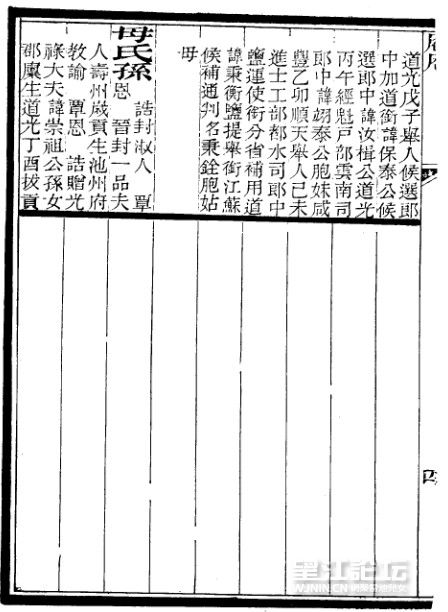 道光戊子舉人候選郎
中加道銜諱保泰公候
選郎中諱汝楫公道光
丙午經魁戶部雲南司
郎中諱翊泰公胞妹咸
豐乙卯順天舉人己未
進士工部都水司郎中
鹽運使銜分省補用道
諱秉衡鹽提舉銜江蘇
候補通判名秉銓胞姑
母
母氏孫
誥封淑人 覃
恩 晉封一品夫
人壽州歲貢生池州府
教諭 覃恩 誥贈光
祿大夫諱崇祖公孫女
郡廩生道光丁酉拔貢
望江论坛